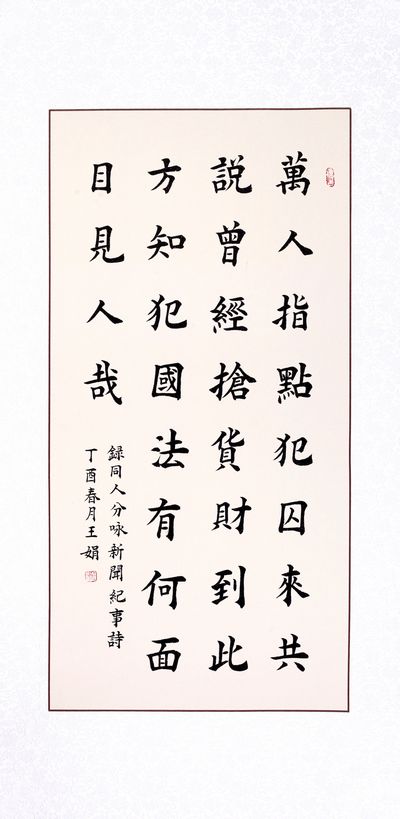 萬人指點犯囚來共
説曾經搶貨財到此
方知犯國法有何面
目見人哉
録同人分咏新聞紀事詩
丁酉春月王娟